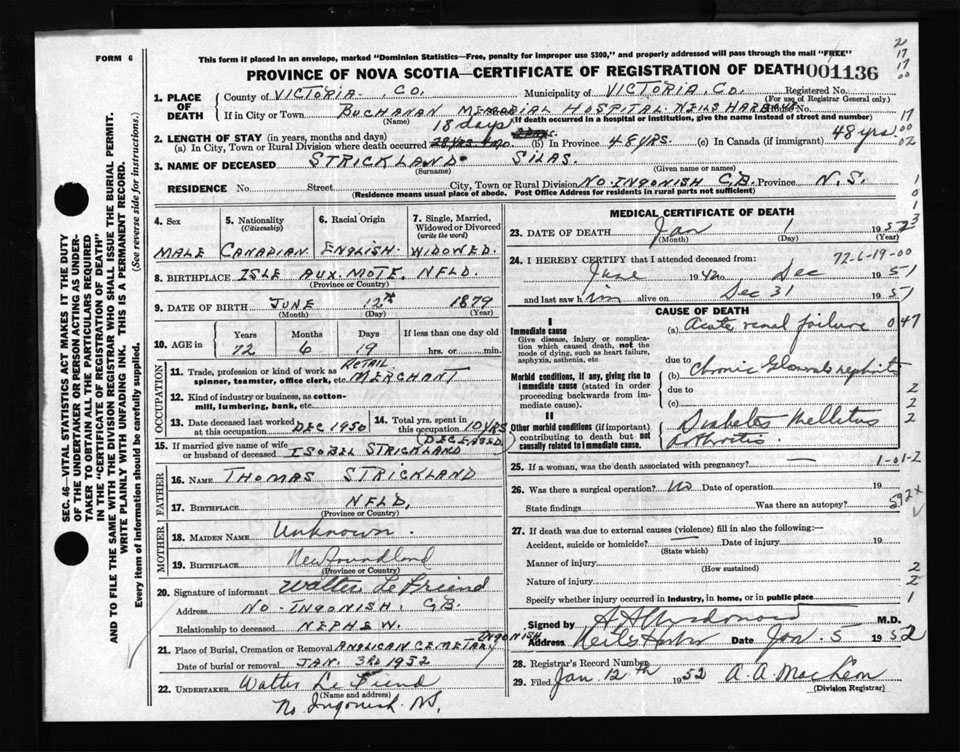 FORM 6
This form if placed in an envelope, marked "Dominion Statistics—Free, penalty for improper use $300," and properly addressed will pass through the mail "FREE"
PROVINCE OF NOVA SCOTIA—CERTIFICATE OF REGISTRATION OF DEATH 001136
2
17
17
00
SEC. 46—VITAL STATISTICS ACT MAKES IT THE DUTY
OF THE UNDERTAKER OR PERSON ACTING AS UNDER-
TAKER TO OBTAIN ALL THE PARTICULARS REQUIRED
IN THE "CERTIFICATE OF REGISTRATION OF DEATH"
AND TO FILE THE SAME WITH THE DIVISION REGISTRAR WHO SHALL ISSUE THE BURIAL PERMIT.
WRITE PLAINLY WITH UNFADING INK. THIS IS A PERMANENT RECORD.
Every item of information should be carefully supplied. (See reverse side for instructions.)
1. PLACE OF DEATH
County of VICTORIA. CO. Municipality of VICTORIA. CO. Registered No.
(For use of Registrar General only)
If in City or Town BUCHANAN MEMORIAL HOSPITAL NEILS HARBOUR
(Name) (If death occurred in a hospital or Institution, give the name instead of street and number)
2. LENGTH OF STAY (in years, months and days) 18 days
(a) In City, Town or Rural Division where death occurred (b) In Province 48 YRS. (c) In Canada (if immigrant) 48 yrs.
17
00
02
3. NAME OF DECEASED STRICKLAND SILAS.
(Surname) (Given name or names)
RESIDENCE No. Street City, Town or Rural Division NO. INGONISH C.B. Province N.S.
(Residence means usual place of abode. Post Office Address for residents in rural parts not sufficient)
4. Sex MALE
5. Nationality (Citizenship) CANADIAN
6. Racial Origin ENGLISH.
7. Single, Married, Widowed or Divorced (write the word) WIDOWED.
8. BIRTHPLACE ISLE AUX. MOTE, NFLD.
(Province or Country)
9. DATE OF BIRTH JUNE 12th 1879
(Month) (Day) (Year)
10. AGE in Years Months Days If less than one day old
72 6 19 hrs. or min.
OCCUPATION
11. Trade, profession or kind of work as spinner, teamster, office clerk, etc. RETAIL MERCHANT
12. Kind of industry or business, as cotton-mill, lumbering, bank, etc.
13. Date deceased last worked at this occupation DEC 1950
14. Total yrs. spent in this occupation 10 YRS
15. If married give name of wife or husband of deceased ISOBEL STRICKLAND (DECEASED)
FATHER
16. NAME THOMAS STRICKLAND
17. BIRTHPLACE NFLD.
(Province or Country)
MOTHER
18. MAIDEN NAME Unknown.
19. BIRTHPLACE Newfoundland
(Province or Country)
20. Signature of informant Walter Le Friend
Address NO. INGONISH. C.B.
Relationship to deceased NEPHEW.
21. Place of Burial, Cremation or Removal ANGLICAN CEMETARY INGONISH
Date of burial or removal JAN. 3RD 1952
22. UNDERTAKER Walter Le Friend
(Name and address)
No Ingonish N.S.
MEDICAL CERTIFICATE OF DEATH
23. DATE OF DEATH Jan 1 1952
(Month) (Day) (Year)
24. I HEREBY CERTIFY that I attended deceased from: 72-6-19-00
June 1940 to Dec 1951
and last saw him alive on Dec 31 1951
CAUSE OF DEATH
I
Immediate cause
Give disease, injury or complication which caused death, not the mode of dying, such as heart failure, asphyxia, asthenia, etc.
(a) Acute renal failure 047
due to
Morbid conditions, if any, giving rise to immediate cause (stated in order proceeding backwards from immediate cause).
(b) Chronic Glomerulo nephritis
due to
(c)
II
Other morbid conditions (if important) contributing to death but not causally related to immediate cause.
Diabetes Mellitus
Arthritis.
2
2
2
25. If a woman, was the death associated with pregnancy? — 1-01-2
26. Was there a surgical operation? No Date of operation 19
State findings Was there an autopsy? 592X
27. If death was due to external causes (violence) fill in also the following:—
Accident, suicide or homicide? Date of injury 19
(State which)
Manner of injury 2
(How sustained)
Nature of injury 2
Specify whether injury occurred in Industry, in home, or in public place 1
Signed by A A Macdonald M.D.
Address Neils Harbor Date Jan. 5 1952
28. Registrar's Record Number
29. Filed Jan. 12th 1952 A. A. MacLeon
(Division Registrar)